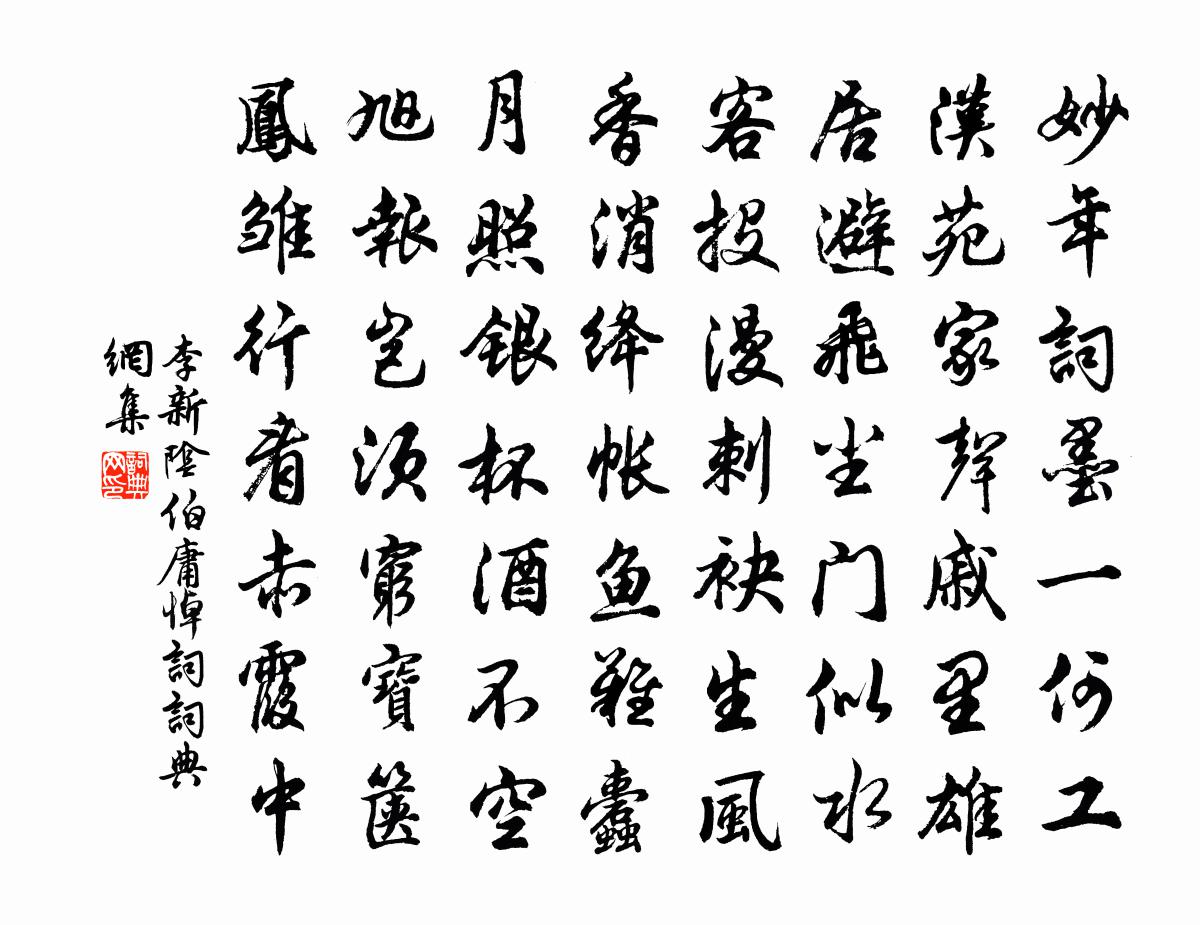 妙年詞墨一何工
漢苑家聲戚里雄
居避飛尘门似水
客投漫刺袂生風
香消绛帐鱼難蠹
月照银杯酒不空
旭報岂须窮寶箧
鳳雏行看赤霞中
李新陰伯庸悼詞詞典
網集
詞典
网印